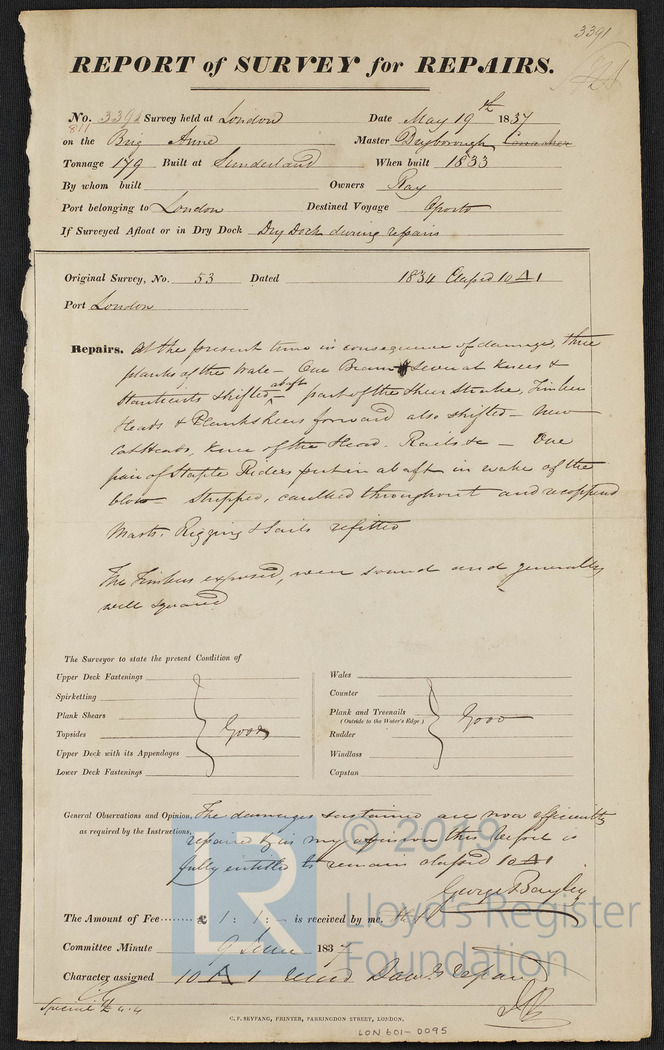 3391
REPORT of SURVEY for REPAIRS.
No. 3391 Survey held at London Date May 19th 1837
811
on the Brig Anne Master Dryborough
Tonnage 179 Built at Sunderland When built 1833
By whom built Owners Ray
Port belonging to London Destined Voyage Oporto
If Surveyed Afloat or in Dry Dock Dry Dock during repairs
Original Survey, No. 53 Dated 1834 Classed 10 A 1
Port London
Repairs. At the present time in consequence of damage, three
planks of the Wale – One Beam & Several Knees &
Stantients shifted abaft – part of the Sheer Strake, Timber
Heads & Planksheers forward also shifted – New
CatHeads, Knee of the Head. Rails &c – One
pair of Staple Riders put in abaft in wake of the
blow – Stripped, caulked throughout and recoppered
Masts. Rigging & Sails refitted
The Timbers exposed, were sound and generally
well squared
The Surveyor to state the present Condition of
Upper Deck Fastenings
Spirketting
Plank Shears
Topsides
Upper Deck with its Appendages
Lower Deck Fastenings
Good
Wales
Counter
Plank and Treenails
(Outside to the Water's Edge)
Rudder
Windlass
Capstan
Good
General Observations and Opinion, The damages sustained are now efficiently
as required by the Instructions, repaired & in my opinion this Vessel is
fully entitled to remain classed 10 A 1
George Bayley
The Amount of Fee ...... £ 1 : 1 : – is received by me,
Committee Minute 9 June 1837
Character assigned 10 A 1 Dam. repaired
Special £ 4.4
C. F. SEYFANG, PRINTER, FARRINGDON STREET, LONDON.
LON 601-0095
LR
© 2019
Lloyd's Register
Foundation